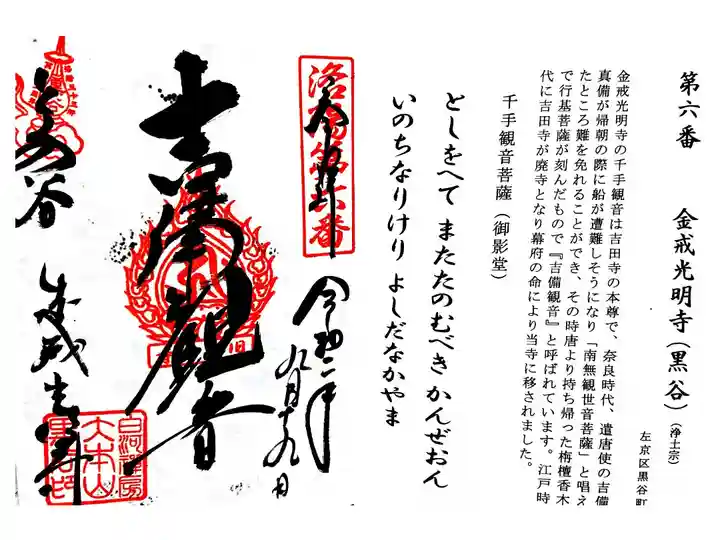 第六番 金戒光明寺(黒谷)(浄土宗)
左京区黒谷町
金戒光明寺の千手観音は吉田寺の本尊で、奈良時代、遣唐使の吉備
真備が帰朝の際に船が遭難しそうになり「南無観世音菩薩」と唱え
たところ難を免れることができ、その時唐より持ち帰った栴檀香木
で行基菩薩が刻んだもので『吉備観音』と呼ばれています。江戸時
代に吉田寺が廃寺となり幕府の命により当寺に移されました。
千手観音菩薩(御影堂)
としをへて またたのむべき かんぜおん
いのちなりけり よしだなかやま
洛陽第六番
奉拝
令和二年
九月十九日
吉備観音
黒谷
金戒光明寺
白河禅房
大本山
黒谷印